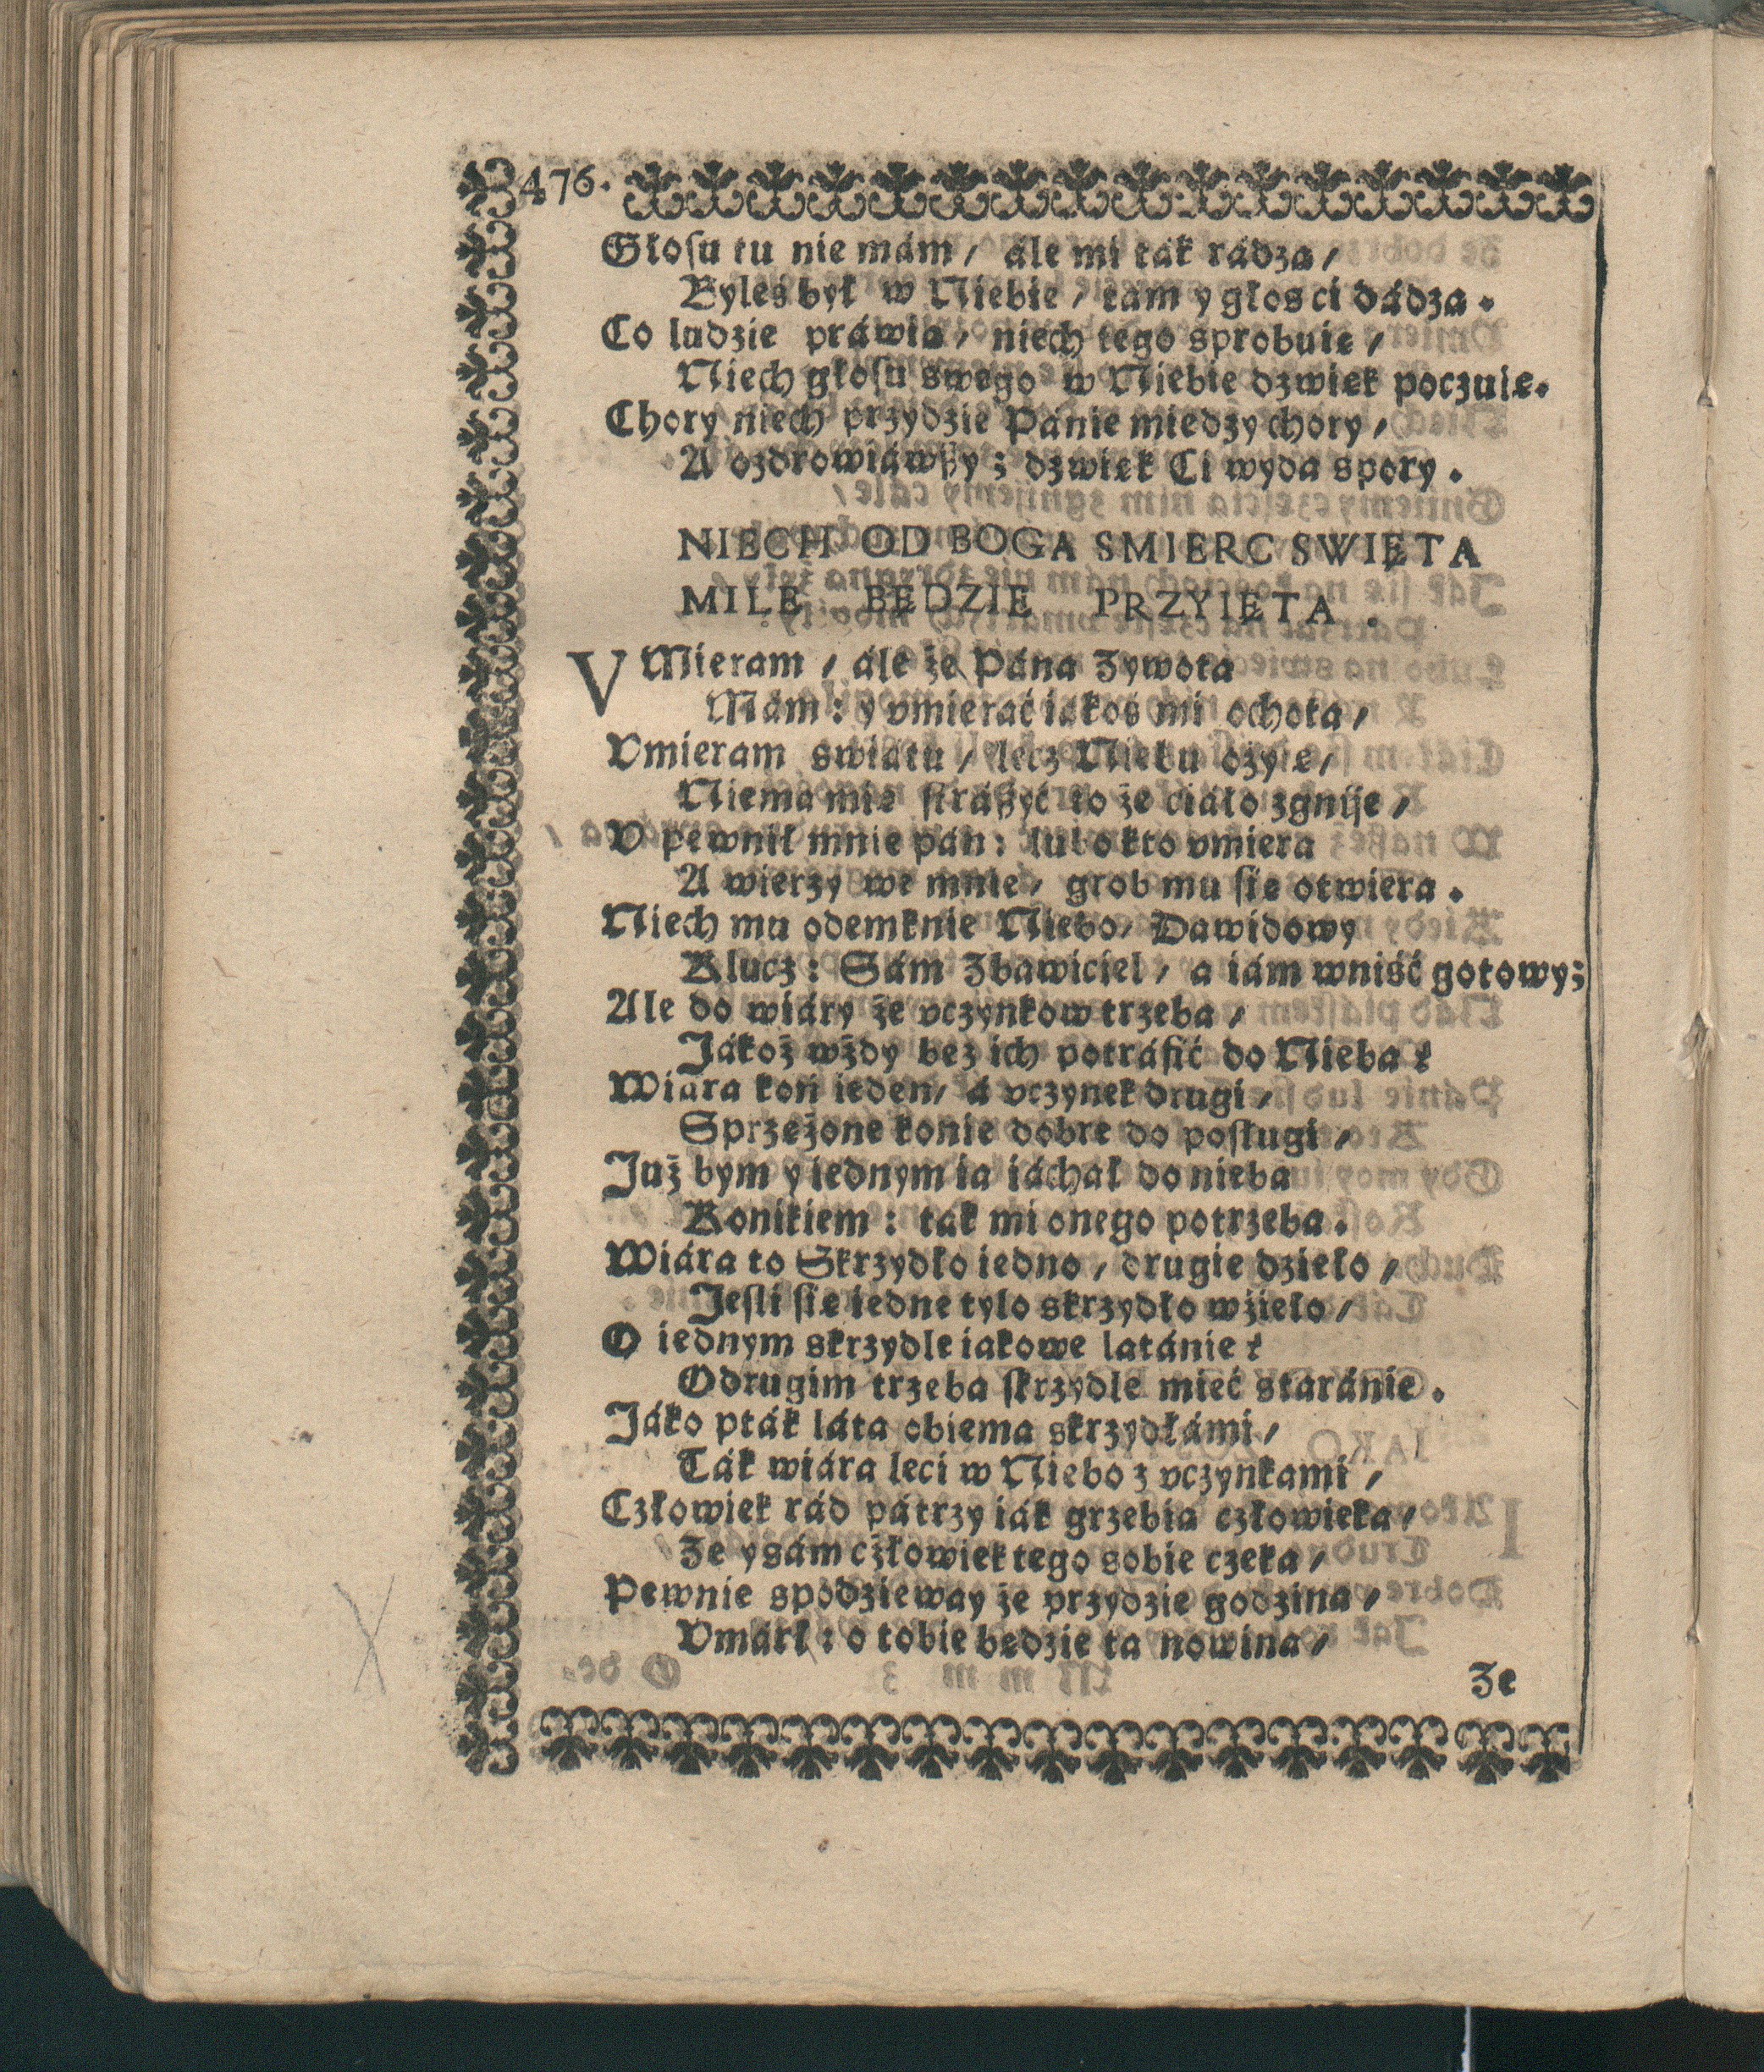 476.
Głosu tu nie mám / ále mi ták rádzą /
Byleś był w Niebie / tám y głos ci dádzą.
Co ludzie práwią / niech tego sprobuię /
Niech głosu swego w Niebie dzwięk poczuię.
Chory niech przydzie Pánie miedzy chory /
A ozdrowiáwszy ; dzwięk Ci wyda spory.
NIECH OD BOGA SMIERC SWIĘTA
MILE BĘDZIE PRZYIĘTA.
VMieram / ále że Páná Zywotá
Mám : y vmieráć iákoś mi ochotá /
Vmieram swiátu / lecz Niebu ożyę /
Niema mię strászyć to że ciáło zgnije /
V pewnił mnie pán : lubo kto vmiera
A wierzy we mnie / grob mu się otwiera.
Niech mu odemknie Niebo / Dawidowy
Klucz : Sám Zbáwiciel / a iám wniść gotowy ;
Ale do wiáry że vczynkow trzebá /
Jákoż wżdy bez ich potráfić do Niebá ?
Wiárá koń ieden / á vczynek drugi /
Sprzężone konie dobre do posługi /
Już bym y iednym ia iáchał do niebá
Konikiem : ták mi onego potrzebá.
Wiárá to Skrzydło iedno / drugie dzieło /
Jesli się iedne tylo skrzydło wzięło /
O iednym skrzydle iákowe latánie ?
O drugim trzebá skrzydle mieć stáránie.
Jáko pták láta obiemá skrzydłámi /
Ták wiárá leci w Niebo z vczynkámi /
Człowiek rád pátrzy iák grzebią człowieká /
Ze y sám człowiek tego sobie czeka /
Pewnie spodzieway że przydzie godziná /
Vmárł : o tobie będzie tá nowiná /
Ze